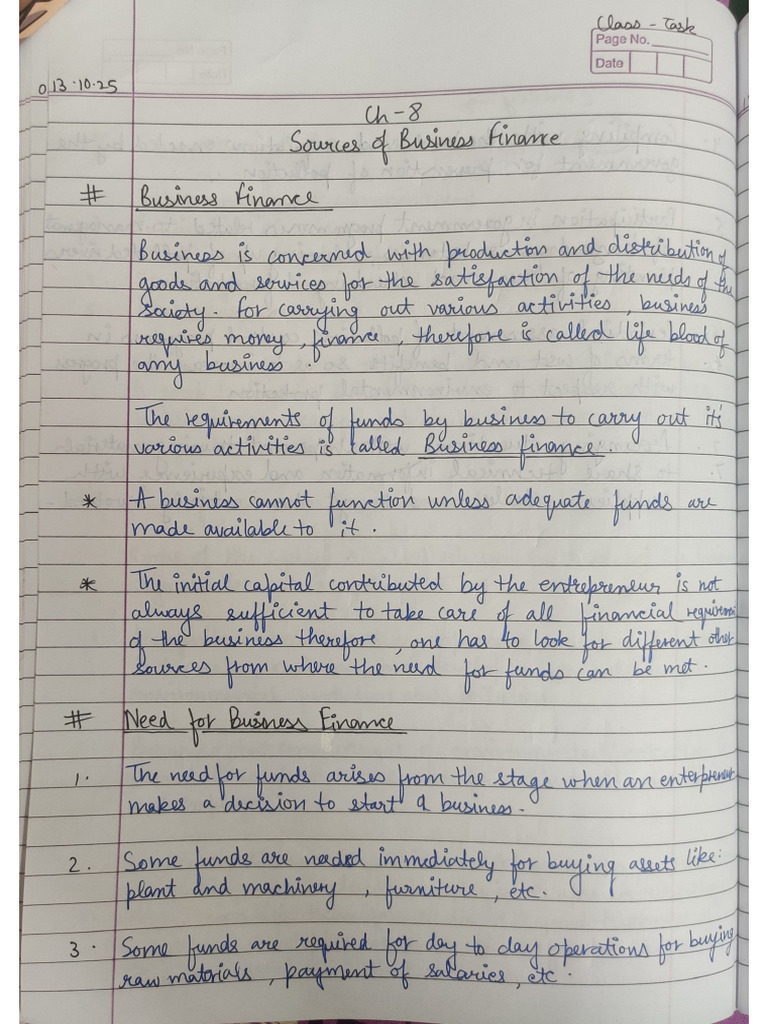 Class - Task
Page No.
Date
13.10.25
Ch-8
Sources of Business Finance
# Business Finance
Business is concerned with production and distribution of
goods and services for the satisfaction of the needs of the
society. For carrying out various activities, business
requires money, finance, therefore is called life blood of
any business.
The requirements of funds by business to carry out it's
various activities is called Business finance.
* A business cannot function unless adequate funds are
made available to it.
* The initial capital contributed by the entrepreneur is not
always sufficient to take care of all financial requirem
of the business therefore, one has to look for different other
sources from where the need for funds can be met.
# Need for Business Finance
1. The need for funds arises from the stage when an enterpreneur
makes a decision to start a business.
2. Some funds are needed immediately for buying assets like:
plant and machinery, furniture, etc.
3. Some funds are required for day to day operations for buying
raw materials, payment of salaries, etc.